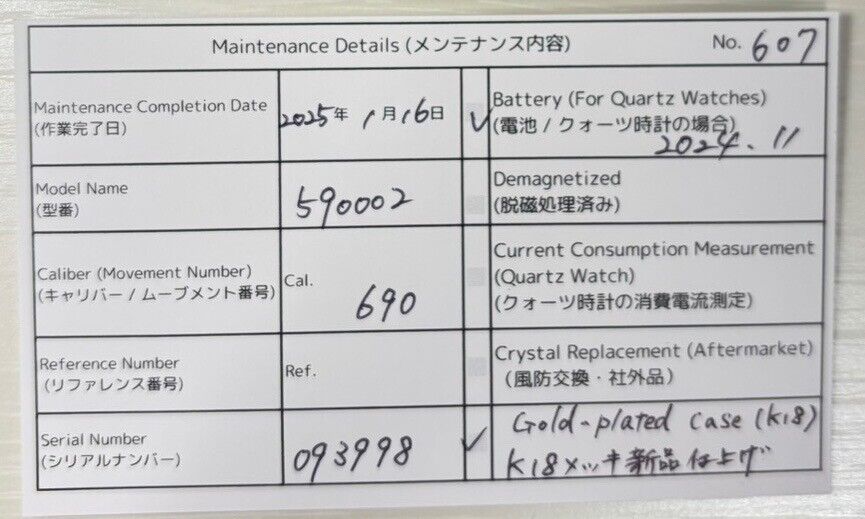 Maintenance Details (メンテナンス内容)
No. 607
Maintenance Completion Date
(作業完了日)
2025年 1月16日
✓
Battery (For Quartz Watches)
(電池 / クォーツ時計の場合)
2024.11
Model Name
(型番)
590002
Demagnetized
(脱磁処理済み)
Caliber (Movement Number)
(キャリバー / ムーブメント番号)
Cal.
690
Current Consumption Measurement
(Quartz Watch)
(クォーツ時計の消費電流測定)
Reference Number
(リファレンス番号)
Ref.
Crystal Replacement (Aftermarket)
(風防交換・社外品)
Serial Number
(シリアルナンバー)
093998
✓
Gold-plated case (K18)
K18メッキ新品仕上げ